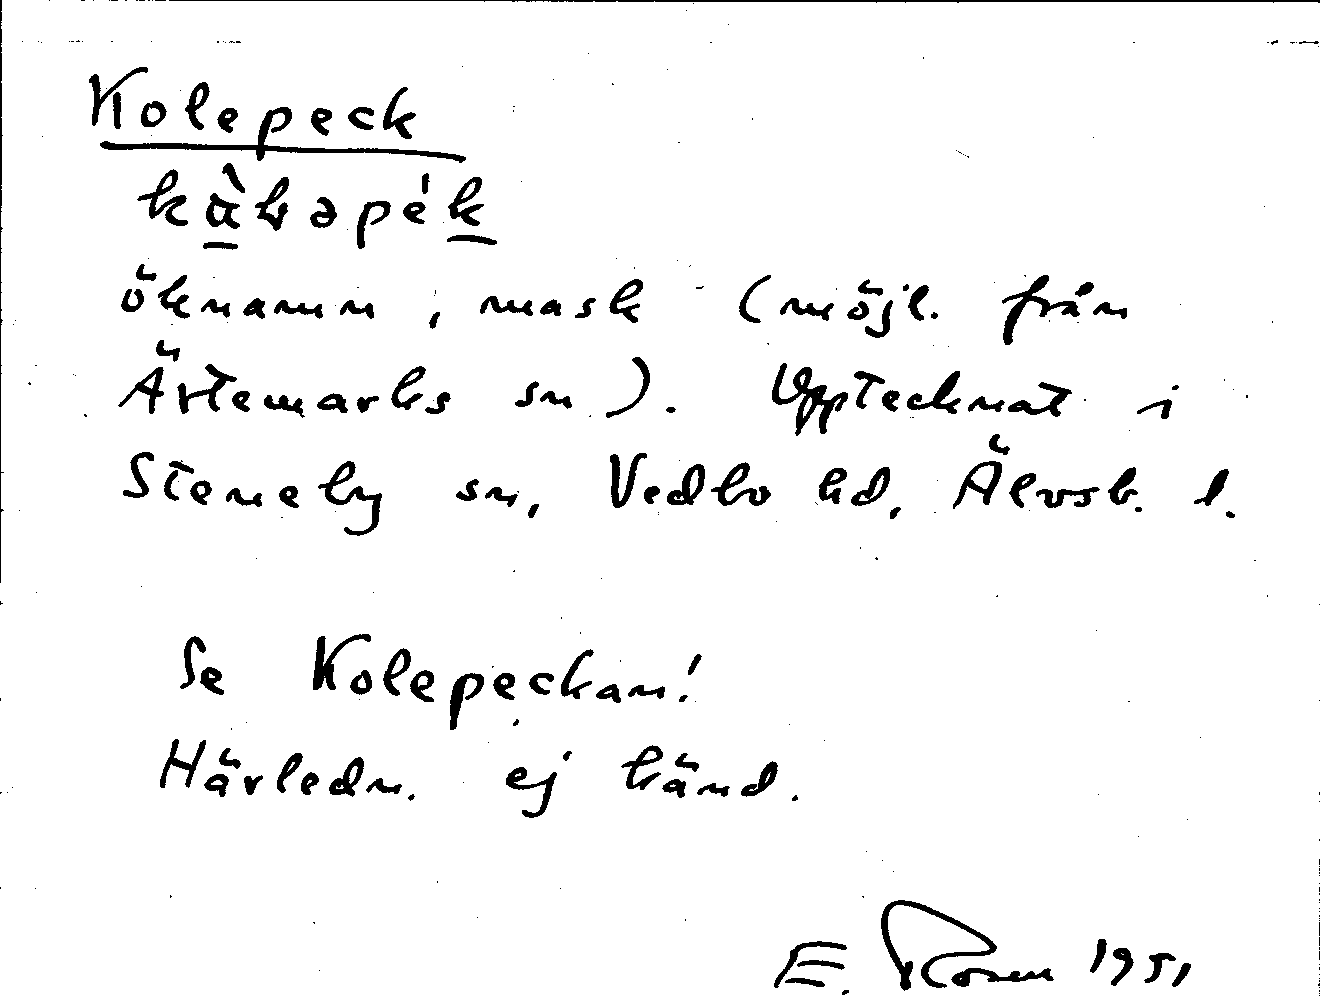 Kolepeck
öknamn, mask (möjl. från
Ärtemarks sn). Upptecknat i
Steneby sn, Vedbo hd, Älvsb. l.
Se Kolepeckan!
Härledn. ej känd.
E. Rosen 1951